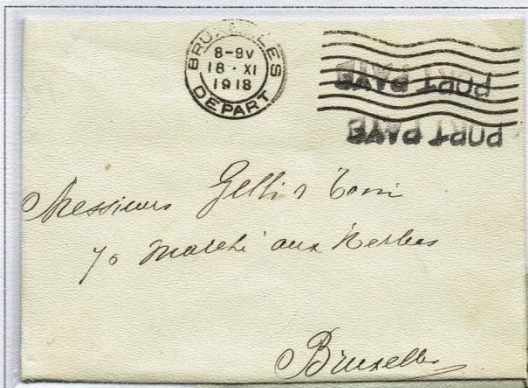 BRUXELLES
8-9V
18·XI
1918
DEPART
PORT PAYE
PORT PAYE
Messieurs
70 Marché aux Herbes
Bruxelles